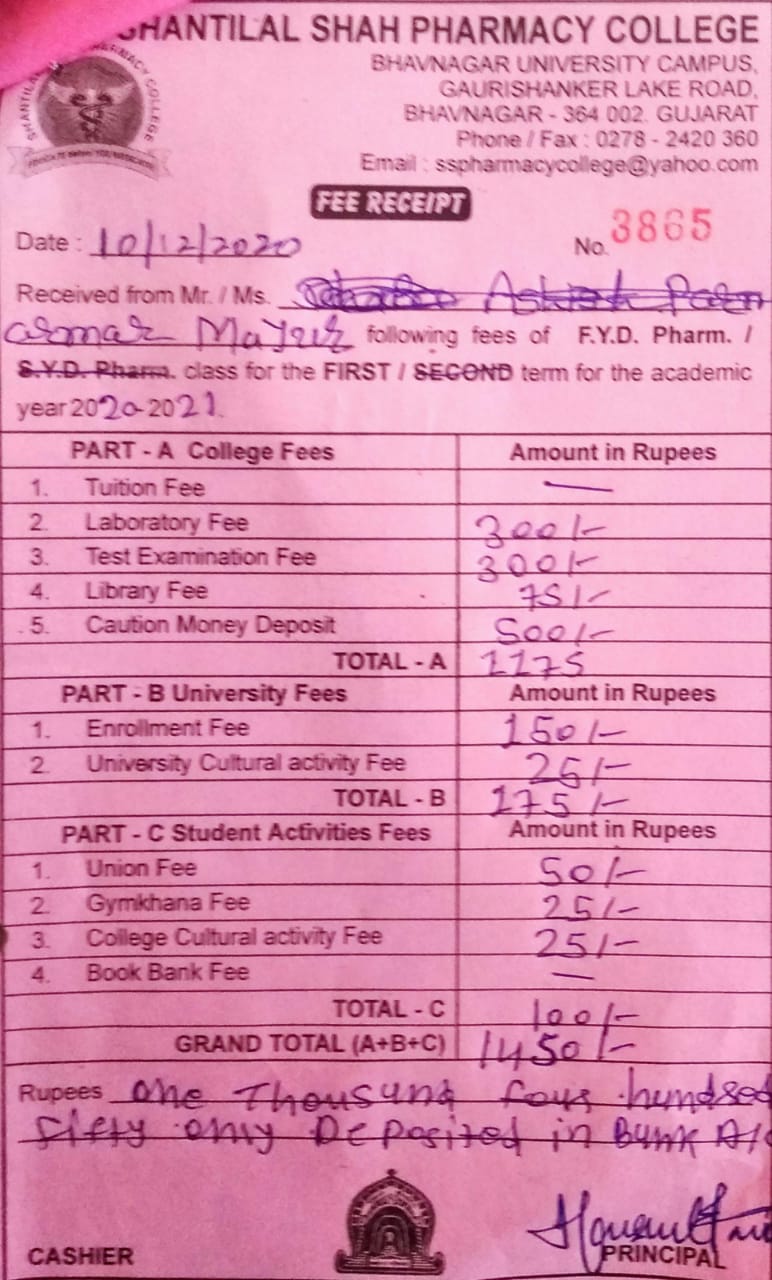 SHANTILAL SHAH PHARMACY COLLEGE
BHAVNAGAR UNIVERSITY CAMPUS,
GAURISHANKER LAKE ROAD,
BHAVNAGAR - 364 002. GUJARAT
Phone / Fax : 0278 - 2420 360
Email : sspharmacycollege@yahoo.com
FEE RECEIPT
Date : 10/12/2020 No. 3865
Received from Mr. / Ms.
following fees of F.Y.D. Pharm. /
S.Y.D. Pharm. class for the FIRST / SECOND term for the academic
year 2020-2021.
PART - A College Fees Amount in Rupees
1. Tuition Fee —
2. Laboratory Fee 300/-
3. Test Examination Fee 300/-
4. Library Fee 75/-
5. Caution Money Deposit 500/-
TOTAL - A 1175
PART - B University Fees Amount in Rupees
1. Enrollment Fee 150/-
2. University Cultural activity Fee 25/-
TOTAL - B 175/-
PART - C Student Activities Fees Amount in Rupees
1. Union Fee 50/-
2. Gymkhana Fee 25/-
3. College Cultural activity Fee 25/-
4. Book Bank Fee —
TOTAL - C 100/-
GRAND TOTAL (A+B+C) 1450/-
Rupees one Thousund four hundred
fifty only Deposited in Bunk A/c
CASHIER PRINCIPAL